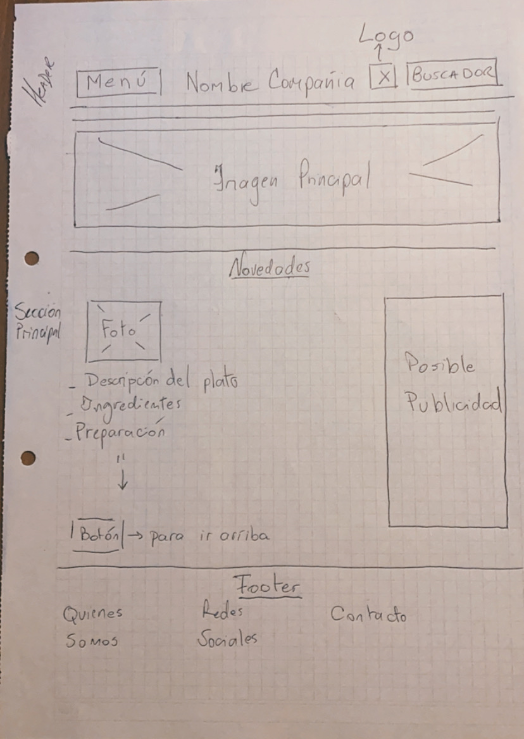 Logo
HEADER
Menú Nombre Compañia X BUSCADOR
Imagen Principal
Novedades
Sección
Principal
Foto
- Descripción del plato
- Ingredientes
- Preparación
"
Posible
Publicidad
Botón → para ir arriba
Footer
Quienes
Somos
Redes
Sociales
Contacto